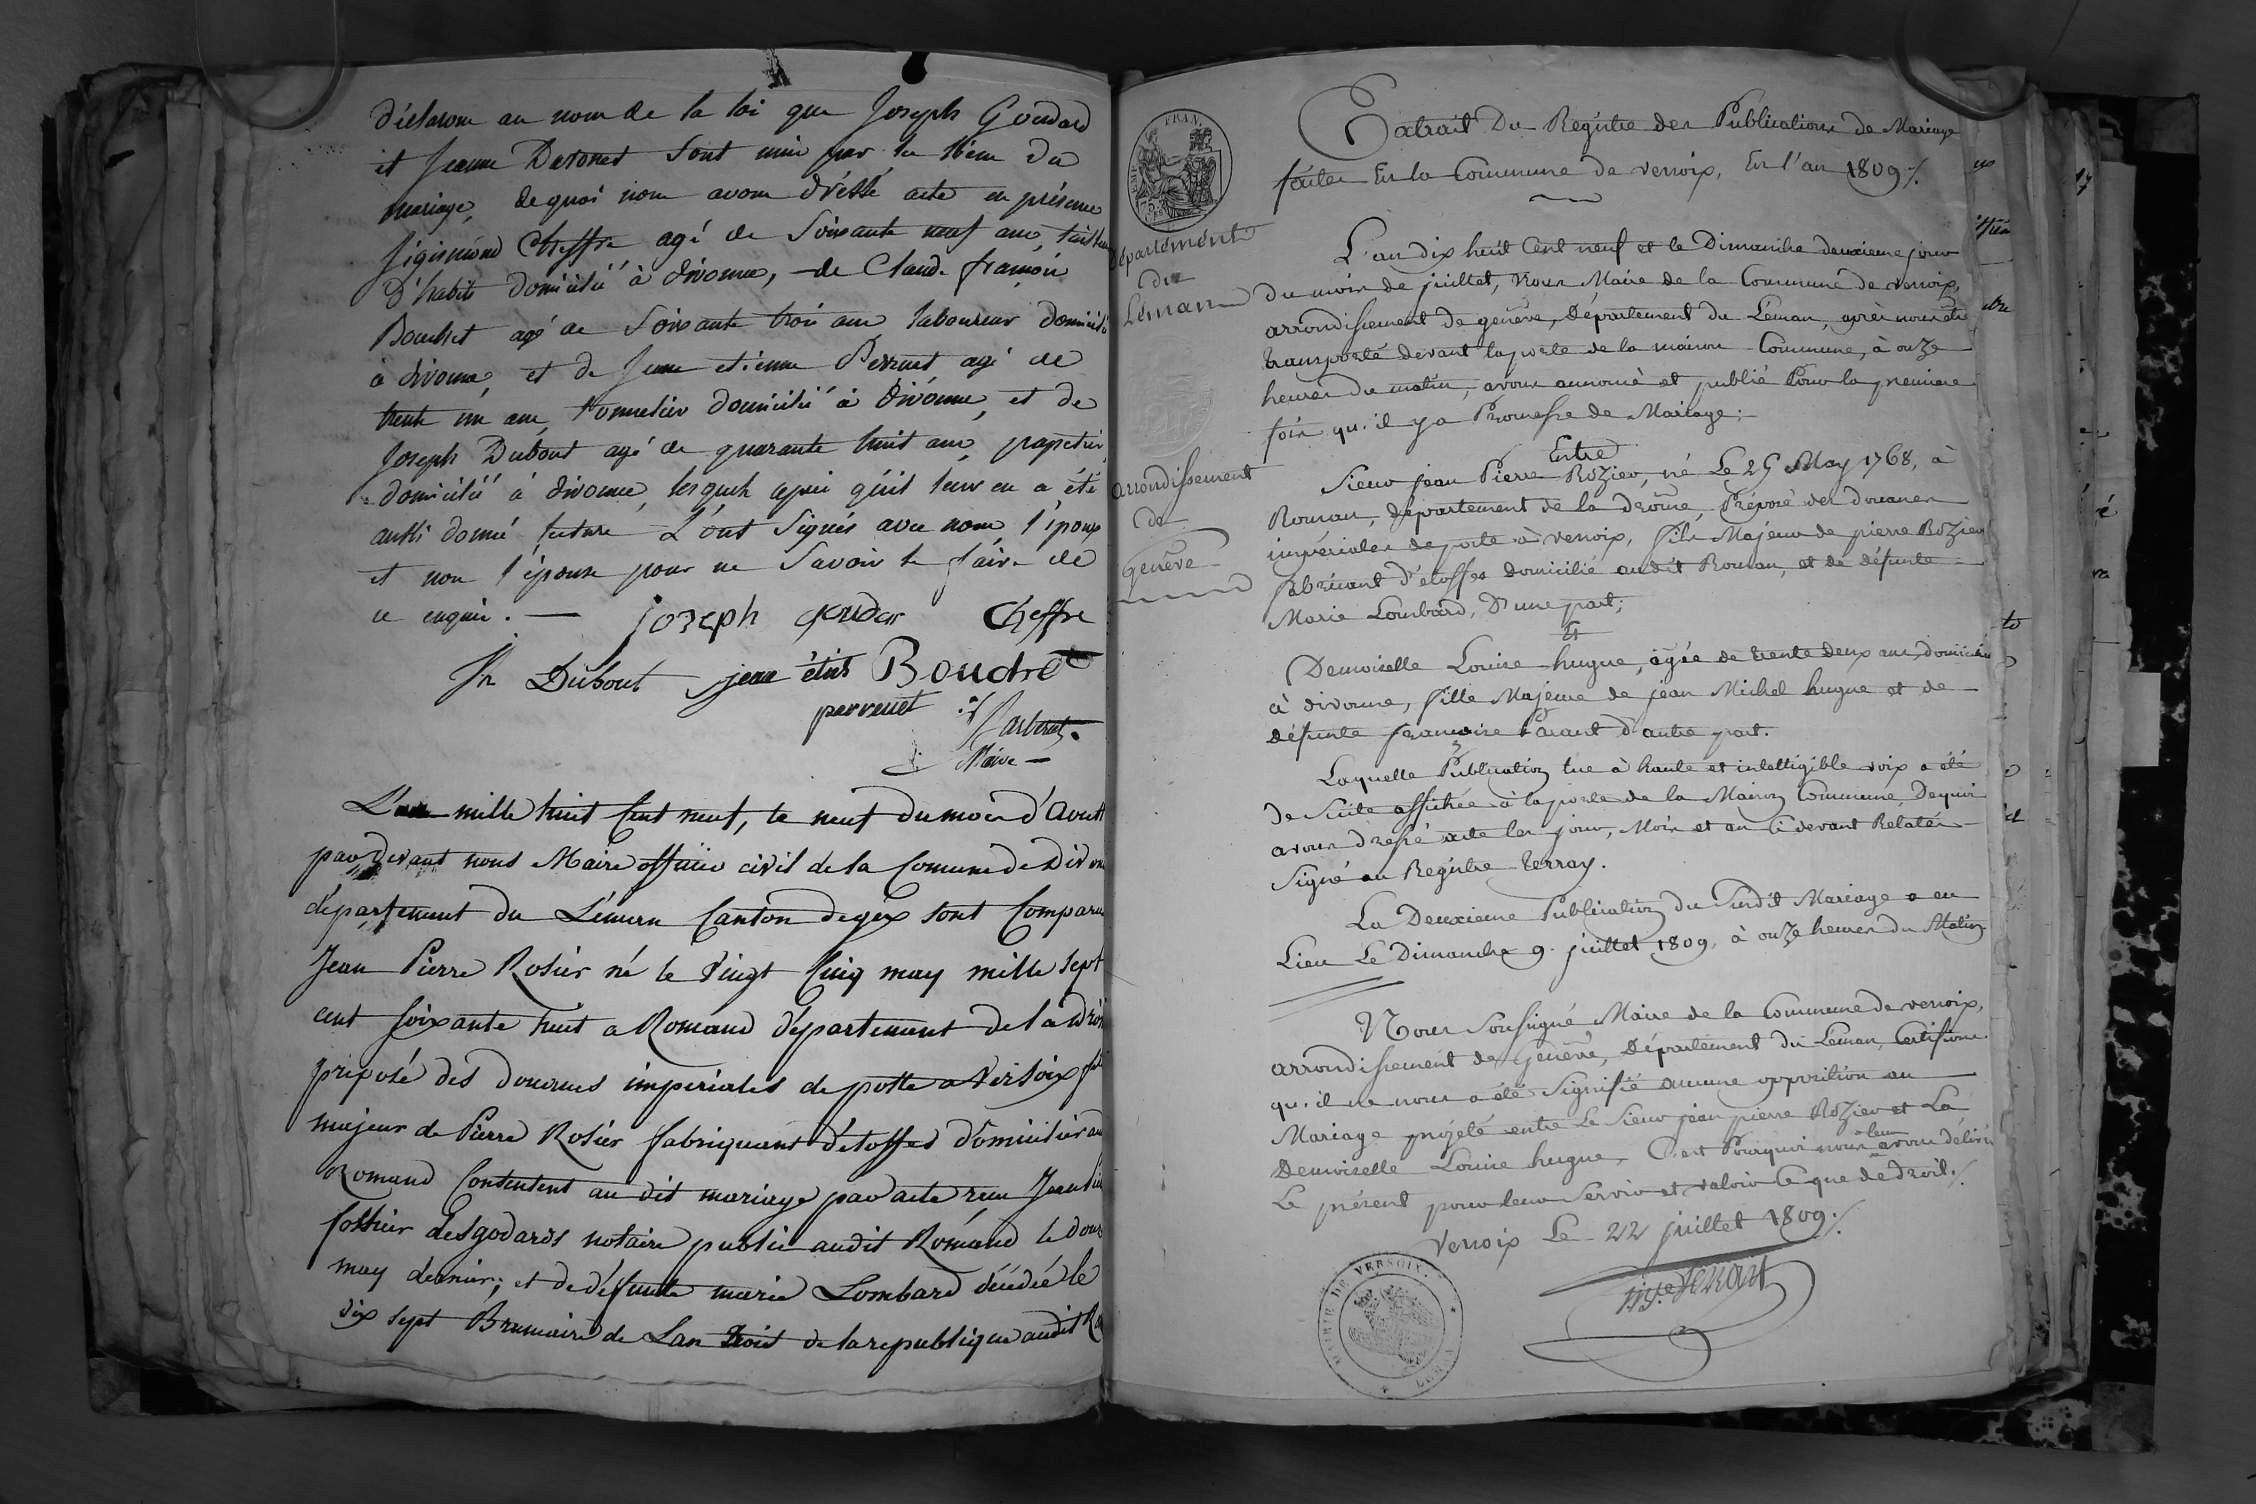 déclarons au nom de la loi que Joseph Goudard
et Jeanne Detonet sont unis par le lien du
mariage, de quoi nous avons dréssé acte en présence
Sigismond Cheffre agé de soixante neuf ans, tailleur
d'habits domicilié à divonne, de Claude françois
Boudret agé de soixante trois ans laboureur domicilié
à divonne, et de Jean etienne Perruet agé de
trente un ans, tonnelier domicilié à divonne, et de
Joseph Dubout agé de quarante huit ans, papetier
domicilié à divonne, lesquels après qu'il leur en a été
aussi donné lecture L'ont signés avec nous, l'époux
et non l'épouse pour ne savoir le faire de
ce enquis. — joseph goudar Cheffre
Jh Dubout jean étiene Boudret
perreuet
Maire
L'an mille huit cent neuf, le neuf du mois d'aoutt
par devant nous Maire officier civil de la Comune de Divonne
département du Léman Canton de gex sont Comparus
Jean Pierre Rosier né le vingt cinq may mille sept
cent soixante huit a Romand département de la drôme
préposé des douanes imperiales de poste a Versoix fils
majeur de Pierre Rosier fabriquant d'étoffes domicilier au
Romand Contentent au dit mariage par acte reçu Jean
fossier desgodards notaire public audit Romand le douze
may dernier; et de défunte marie Lombard décédée le
dix sept Brumaire de Lan trois de la republique audit Ro
FRAN.
Département
du
Léman
arrondissement
de
Genêve
Extrait Du Regitre des Publications de Mariage
faites En la Commune de versoix, En l'an 1809 ./.
L'an dix huit Cent neuf et le Dimanche deuxieme jour
du mois de juillet, Nous Maire de la Commune de versoix,
arrondissement de genêve, Département du Léman, après nous être
transporté devant la porte de la maison Commune, à onze
heures du matin, avons annoncé et publié Pour la premiere
fois qu'il y a Promesse de Mariage;
Entre
Sieur jean Pierre Rozier, né Le 25 May 1768, à
Roman, département de la drôme, Préposé des douanes
impériales de poste à versoix, fils Majeur de pierre Rozier
fabricant d'étoffes domicilié audit Roman, et de défunte
Marie Lombard, D'une part;
Et
Demoiselle Louise hugue, âgée de trente deux ans, domiciliée
à divonne, fille Majeure de jean Michel hugue et de
défunte francoise Parant d'autre part.
Laquelle Publication lue à haute et intelligible voix a été
de Suite affichée à la porte de la Maison Commune, De quoi
avons dressé acte les jour, Mois et an Ci devant Relatés
Signé au Regitre terray.
La Deuxieme Publication du Susdit Mariage a eu
Lieu Le Dimanche 9. juillet 1809, à onze heures du Matin
Nous Soussigné Maire de la Commune de versoix,
arrondissement de Genêve, Département du Léman, Certifions
qu'il ne nous a été Signifié aucune opposition au
Mariage projeté entre Le Sieur jean pierre Rozier et La
Demoiselle Louise hugue, C'est Pourquoi nous leur avons délivré
Le présent pour leur Servir et valoir Ce que de droit ./.
Versoix Le 22 juillet 1809 ./.
MAIRIE DE VERSOIX.